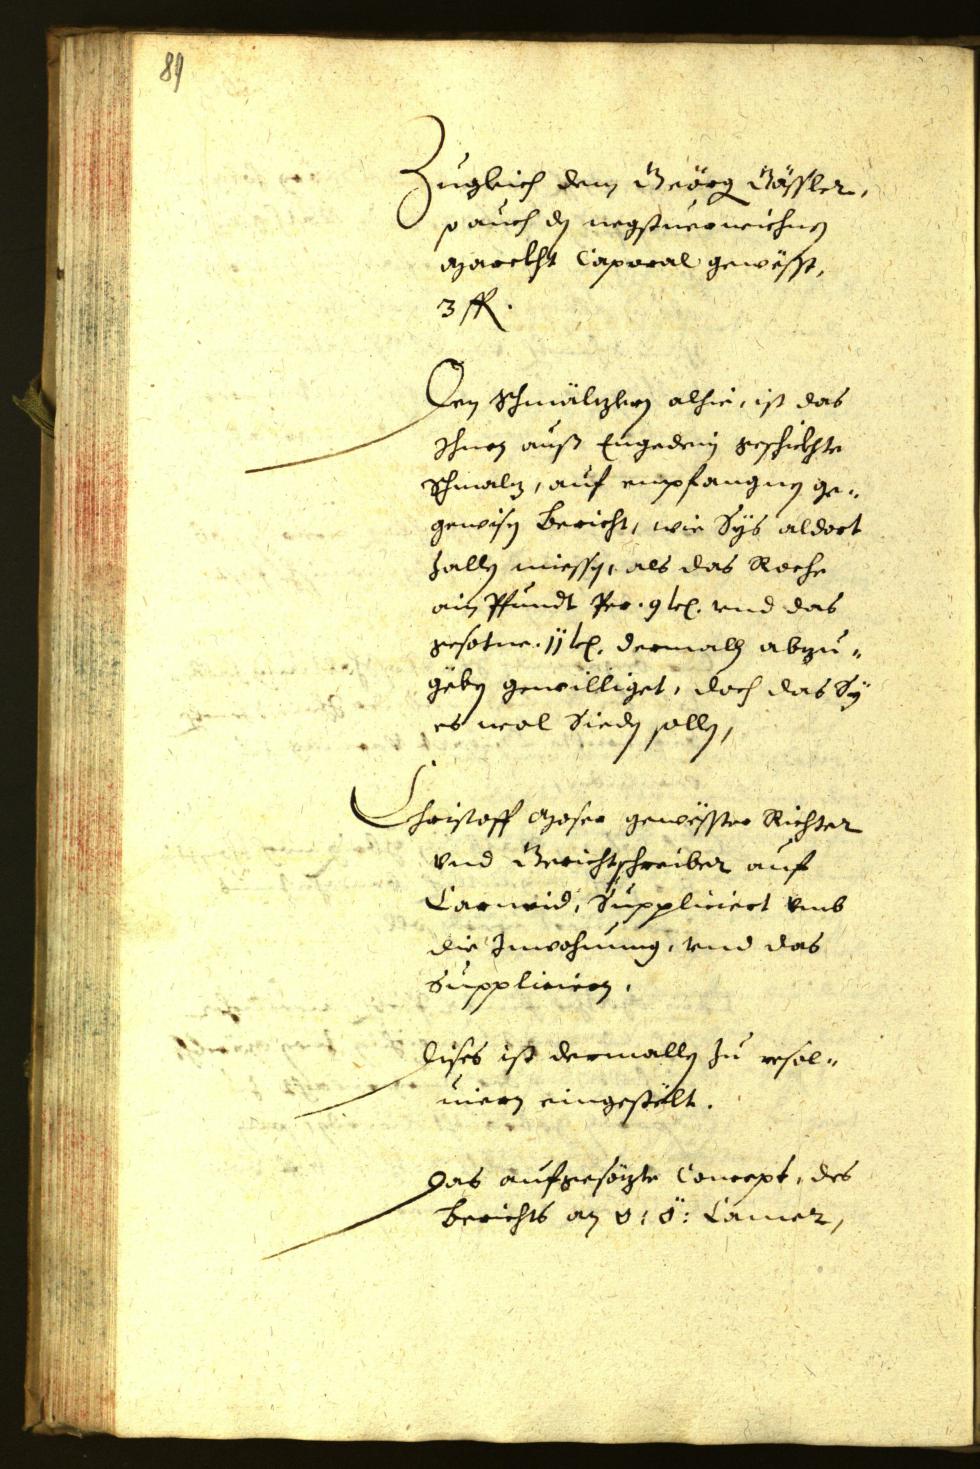 89
Zugleich dem Geörg Gässler,
so auch den negstuerwichnen
Marckht Caporal gewësst,
3 fl.
Den Schmälzlern alhie, ist das
Ihnen auß Engedein geschickhte
Schmalz, auf empfangnen ge¬
gewisen Bericht, wie Sÿs aldort
zallen miessen, als das Roche
ain Pfundt Per. 9 kr. vnd das
gesotne. 11 kr. dermalen abzu¬
gëben gewilliget, doch das Sÿ
es wol Sieden sollen,
Christoff Moser gewësster Richter
vnd Gerichtschreiber auf
Carneid, Suppliciert vmb
die Inwohnung, vnd das
Supplicieren.
Dises ist dermallen zu resol¬
uiern eingestëlt.
Das aufgesözte Concept, des
berichts an O: Ö: Camer,